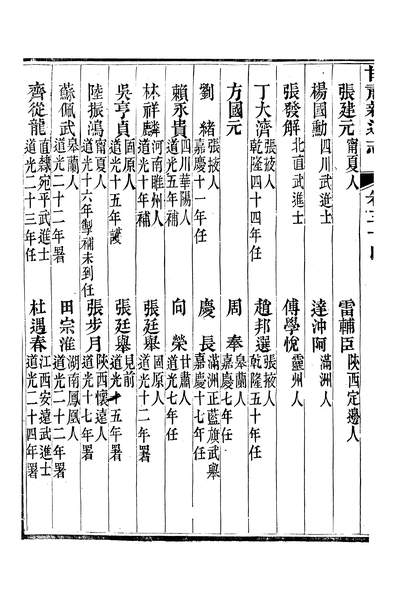 甘肅新通志 卷
張建元 甯夏人 雷輔臣 陜西定邊人
楊國勳 四川武進士 達沖阿 滿洲人
張發解 北直武進士 傅學悅 靈州人
丁大濟 張掖人 乾隆四十四年任 趙邦選 張掖人 乾隆五十年任
方國元 周奉 皋蘭人 嘉慶七年任
劉緒 張掖人 嘉慶十一年任 慶長 滿洲正藍旗武舉 嘉慶十七年任
賴永貴 四川華陽人 道光五年補 向榮 甘肅人 道光七年任
林祥麟 河南睢州人 道光十年補 張廷舉 固原人 道光十二年署
吳亨貞 固原人 道光十五年護 張廷舉 見前 道光十五年署
陸振鴻 甯夏人 道光十六年掣補未到任 張步月 陜西懷遠人 道光十七年署
蘇佩武 皋蘭人 道光二十二年署 田宗淮 湖南鳳凰人 道光二十二年署
齊從龍 直隸宛平武進士 道光二十三年任 杜遇春 江西安遠武進士 道光二十四年署